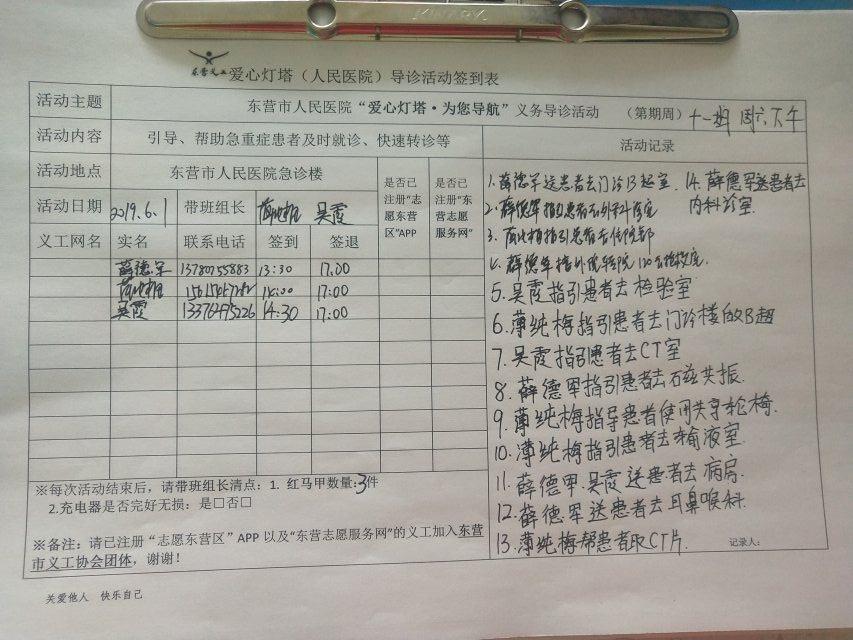 东营义工 爱心灯塔（人民医院）导诊活动签到表
活动主题 东营市人民医院“爱心灯塔·为您导航”义务导诊活动 （第期周） 十一期 周六下午
活动内容 引导、帮助急重症患者及时就诊、快速转诊等 活动记录
活动地点 东营市人民医院急诊楼
是否已注册“志愿东营区”APP
是否已注册“东营志愿服务网”
活动日期 2019.6.1 带班组长 吴霞
义工网名 实名 联系电话 签到 签退
薛德军 13780755883 13:30 17:00
17:00
吴霞 14:30 17:00
1. 薛德军送患者去门诊B超室.
2. 薛德军指引患者去外科诊室
3. 指引患者去住院部
4. 薛德军
5. 吴霞指引患者去检验室
6. 薄纯梅指引患者去门诊楼做B超
7. 吴霞指引患者去CT室
8. 薛德军指引患者去磁共振.
9. 薄纯梅指导患者使用共享轮椅.
10. 薄纯梅指引患者去输液室.
11. 薛德甲.吴霞送患者去病房.
12. 薛德军送患者去耳鼻喉科.
13. 薄纯梅帮患者取CT片.
14. 薛德军送患者去
内科诊室.
记录人：
※每次活动结束后，请带班组长清点：1. 红马甲数量:3件
2.充电器是否完好无损：是□否□
※备注：请已注册“志愿东营区”APP 以及“东营志愿服务网”的义工加入东营
市义工协会团体，谢谢！
关爱他人 快乐自己